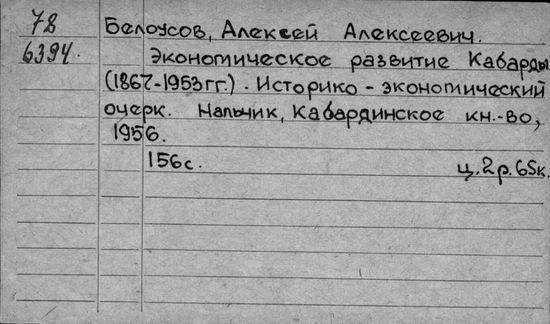 78
6394.
Белоусов, Алексей Алексеевич.
Экономическое развитие Кабарды
(1867-1953гг.). Историко-экономический
очерк. Нальчик, Кабардинское кн.-во,
1956.
156с. ц.2р.65к.